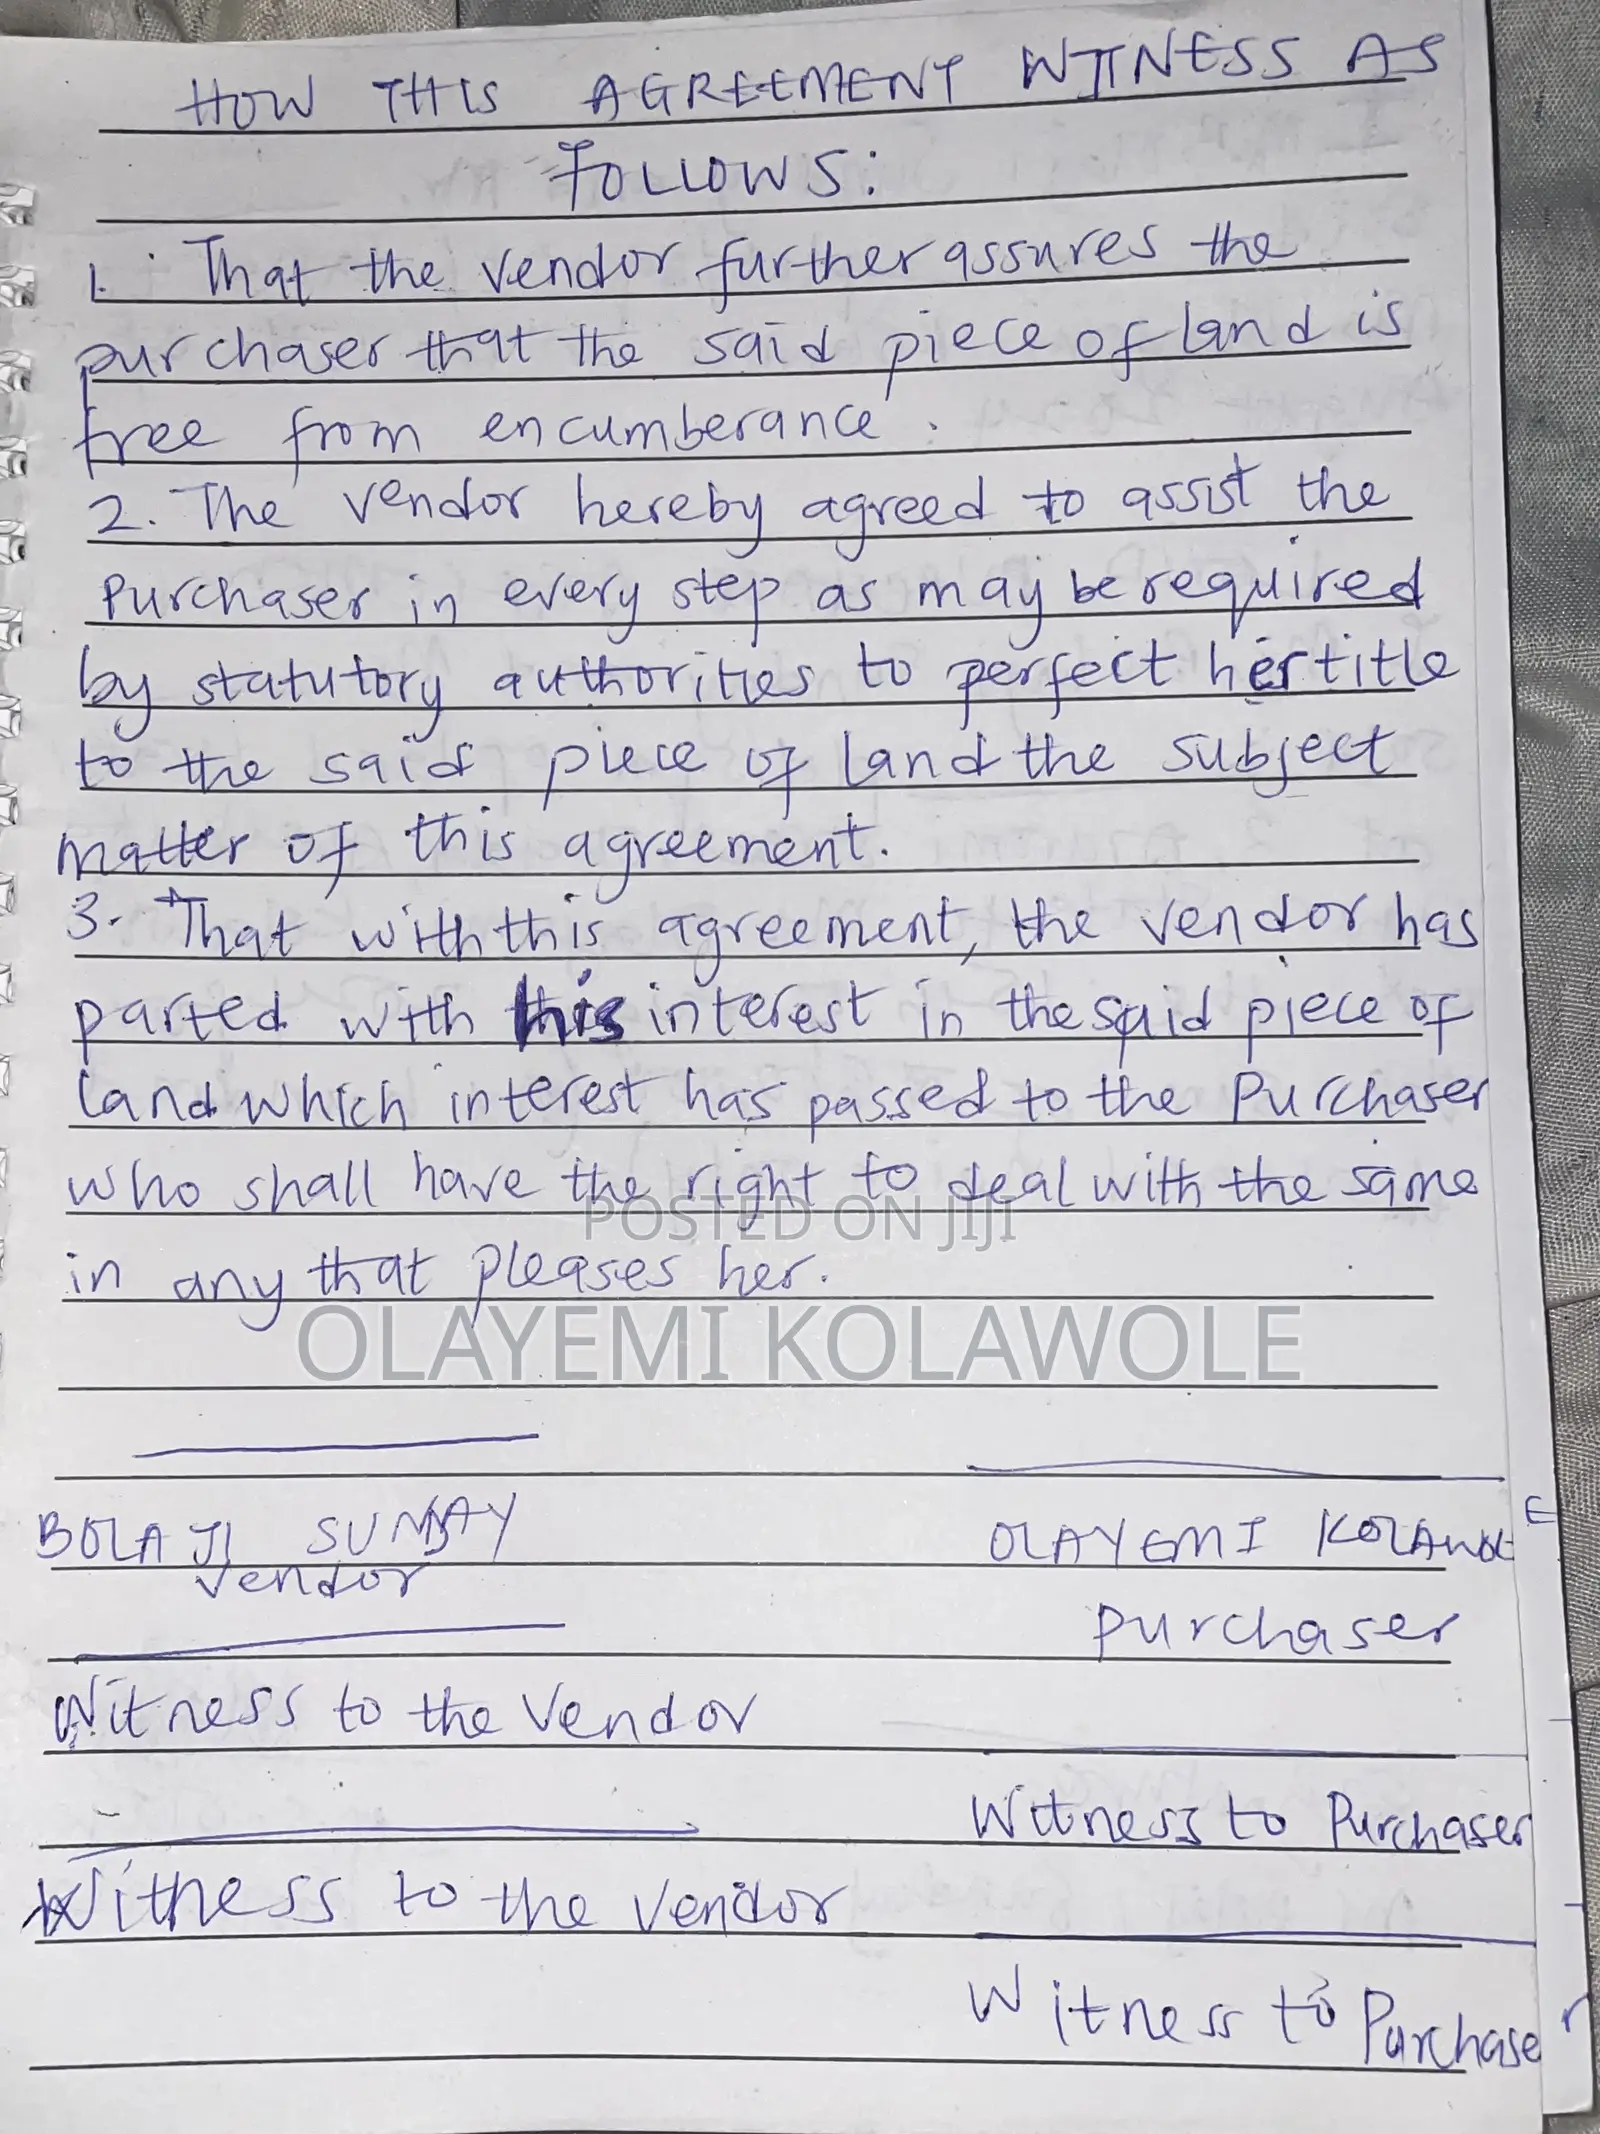 HOW THIS AGREEMENT WITNESS AS
FOLLOWS:
1. That the vendor further assures the
purchaser that the said piece of land is
free from encumberance.
2. The vendor hereby agreed to assist the
purchaser in every step as may be required
by statutory authorities to perfect her title
to the said piece of land the subject
matter of this agreement.
3. That with this agreement, the vendor has
parted with his interest in the said piece of
land which interest has passed to the purchaser
who shall have the right to deal with the same
POSTED ON JIJI
in any that pleases her.
OLAYEMI KOLAWOLE
BOLAJI SUNDAY
OLAYEMI KOLAWOLE
Vendor
purchaser
Witness to the Vendor
Witness to Purchaser
Witness to the Vendor
Witness to Purchaser